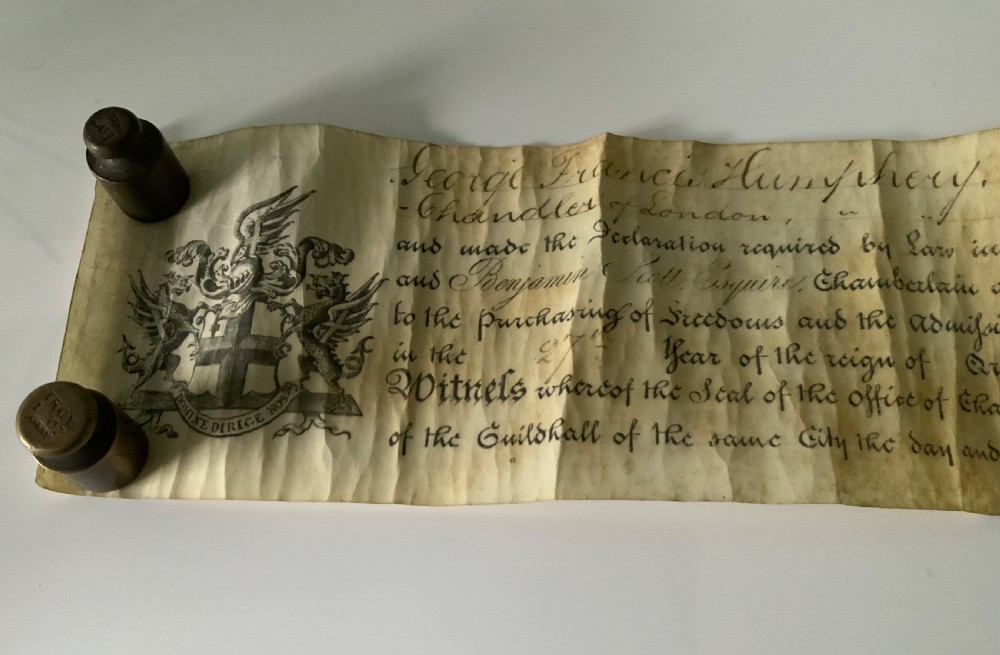 George Francis Humphery,
Chandler of London, " "
and made the Declaration required by Law in
and Benjamin Scott, Esquire, Chamberlain
to the purchasing of Freedoms and the Admiss
in the 27th Year of the reign of
Witness whereof the Seal of the Office of Cha
of the Guildhall of the same City the day and
DOMINE DIRIGE NOS
IRON